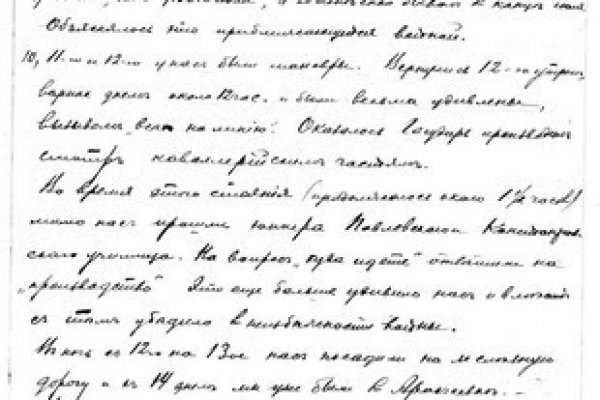 Объяснялось это приближающейся войной.
10, 11-го и 12-го у нас были маневры. Вернулись 12-го утром,
вернее днем около 12 час. и были весьма удивлены,
вызовом „всех на линию". Оказалось Государь производит
смотр кавалерийским частям.
Во время этого стояния (продолжалось около 1½ часов)
мимо нас прошли юнкера Павловского
ского училища. На вопрос „куда идете" ответили на
„производство" Это еще больше удивило нас и
с тем убедило в неизбежности войны.
В ночь с 12го на 13ое нас посадили на железную
дорогу и 14 днем мы уже были в